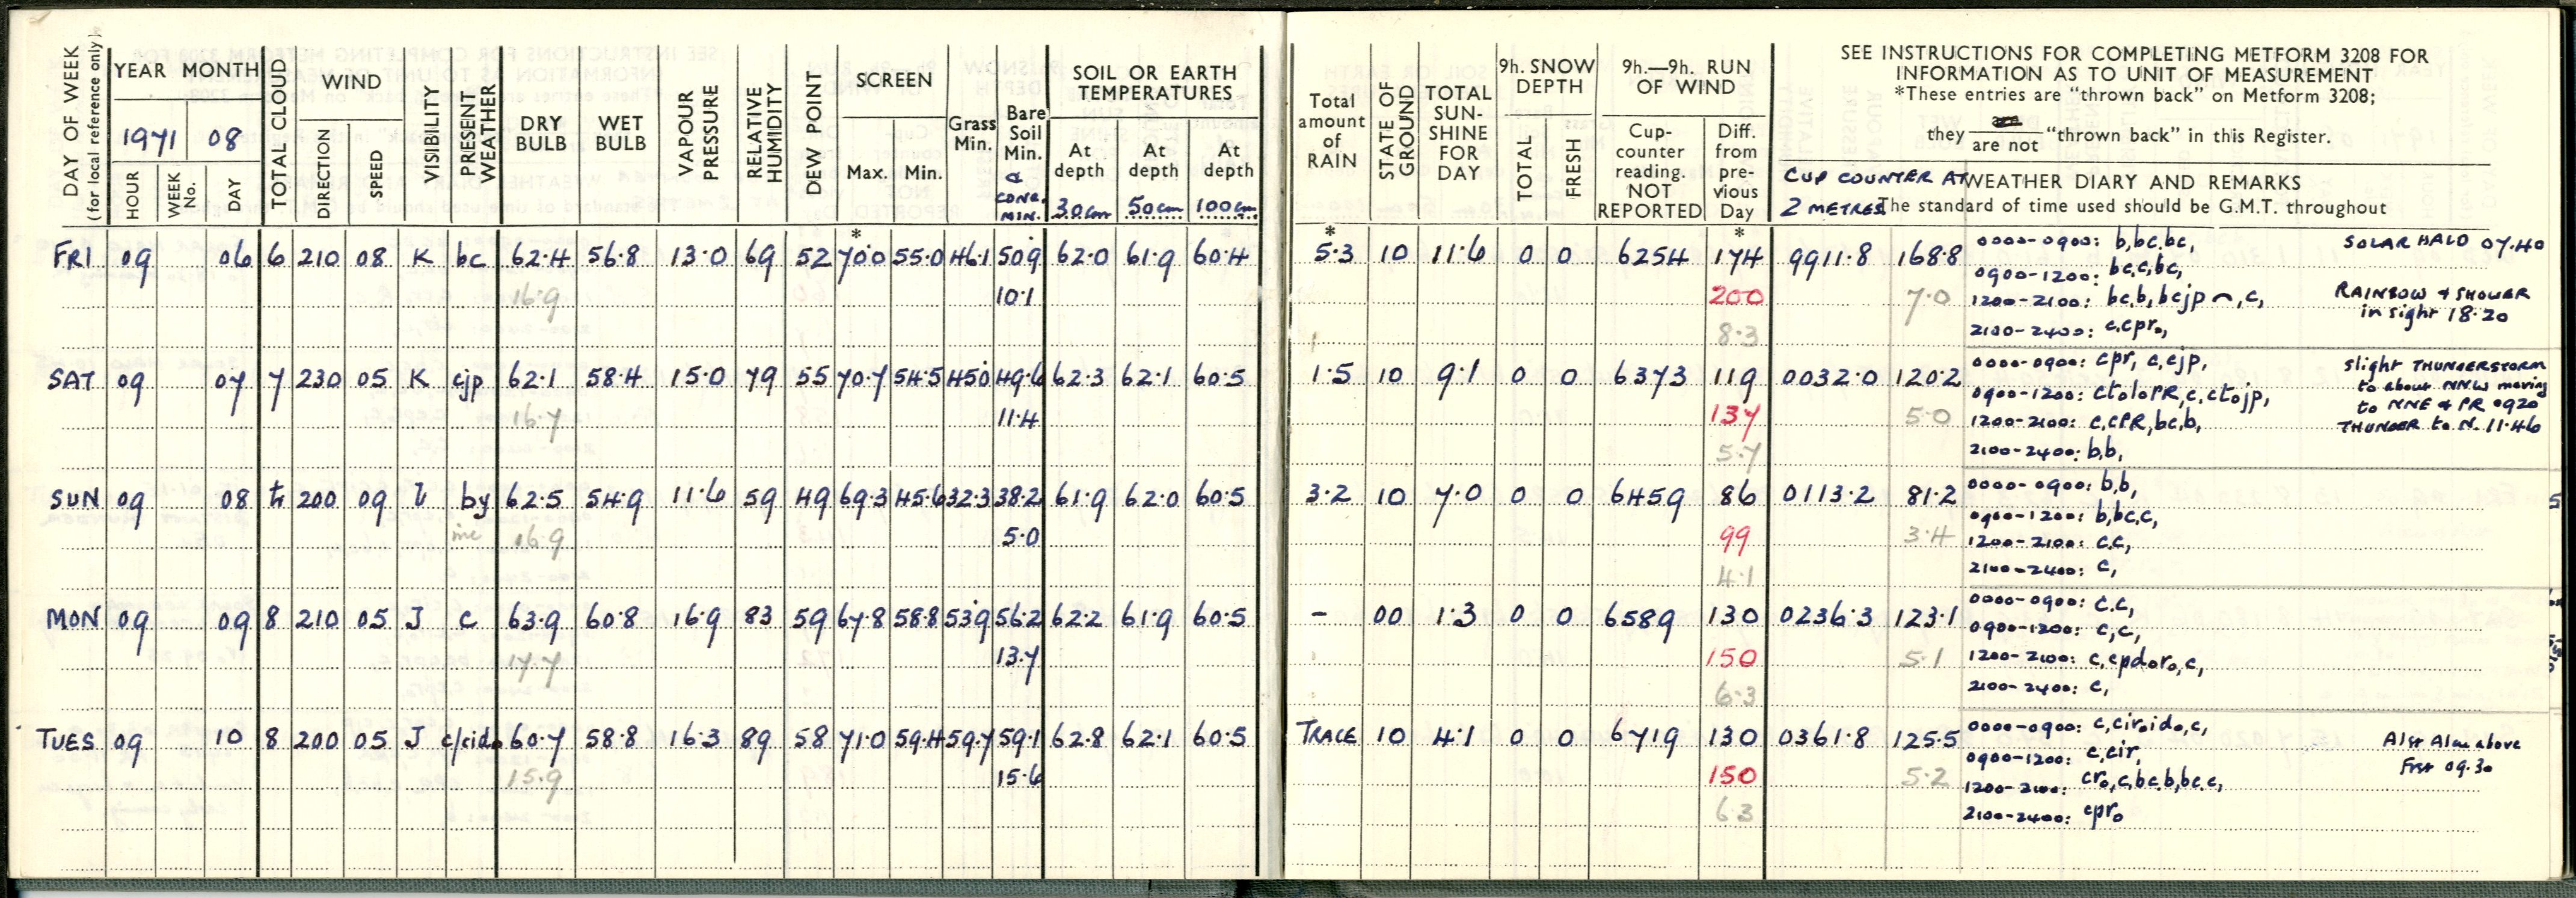 DAY OF WEEK
(for local reference only)
YEAR MONTH
1971 08
HOUR
WEEK No.
DAY
TOTAL CLOUD
WIND
DIRECTION
SPEED
VISIBILITY
PRESENT WEATHER
DRY BULB
WET BULB
VAPOUR PRESSURE
RELATIVE HUMIDITY
DEW POINT
SCREEN
Max. Min.
Grass Min.
Bare Soil Min.
& CONC. MIN.
SOIL OR EARTH TEMPERATURES
At depth 30cm
At depth 50cm
At depth 100cm
Total amount of RAIN
STATE OF GROUND
TOTAL SUN-SHINE FOR DAY
9h. SNOW DEPTH
TOTAL
FRESH
9h.—9h. RUN OF WIND
Cup-counter reading. NOT REPORTED
Diff. from pre-vious Day
SEE INSTRUCTIONS FOR COMPLETING METFORM 3208 FOR
INFORMATION AS TO UNIT OF MEASUREMENT
*These entries are "thrown back" on Metform 3208;
they are / are not "thrown back" in this Register.
CUP COUNTER AT
2 METRES
WEATHER DIARY AND REMARKS
The standard of time used should be G.M.T. throughout
* * *
FRI 09 06 6 210 08 K bc 62.4 56.8 13.0 69 52 70.0 55.0 46.1 50.9 62.0 61.9 60.4 5.3 10 11.6 0 0 6254 174 9911.8 168.8
16.9 10.1 200 7.0
8.3
0000-0900: b,bc.bc,
0900-1200: bc,c,bc,
1200-2100: bc,b,bcjp⌒,c,
2100-2400: c,cpr₀,
SOLAR HALO 07.40
RAINBOW & SHOWER
in sight 18.20
SAT 09 07 7 230 05 K cjp 62.1 58.4 15.0 79 55 70.7 54.5 45.0 49.6 62.3 62.1 60.5 1.5 10 9.1 0 0 6373 119 0032.0 120.2
16.7 11.4 137 5.0
5.7
0000-0900: cpr, c,cjp,
0900-1200: ctoloPR,c,ctojp,
1200-2100: c,cPR,bc,b,
2100-2400: b,b,
Slight THUNDERSTORM
to about NNW moving
to NNE & PR 0920
THUNDER to N. 11.46
SUN 09 08 200 09 by 62.5 54.9 11.6 59 49 69.3 45.6 32.3 38.2 61.9 62.0 60.5 3.2 10 7.0 0 0 6459 86 0113.2 81.2
16.9 5.0 99 3.4
4.1
0000-0900: b,b,
0900-1200: b,bc,c,
1200-2100: c.c,
2100-2400: c,
MON 09 09 8 210 05 J c 63.9 60.8 16.9 83 59 67.8 58.8 53.9 56.2 62.2 61.9 60.5 - 00 1.3 0 0 6589 130 0236.3 123.1
17.7 13.7 150 5.1
6.3
0000-0900: c.c,
0900-1200: c,c,
1200-2100: c,cpdoro,c,
2100-2400: c,
TUES 09 10 8 200 05 J c/cid₀ 60.7 58.8 16.3 89 58 71.0 59.4 59.7 59.1 62.8 62.1 60.5 TRACE 10 4.1 0 0 6719 130 0361.8 125.5
15.9 15.6 150 5.2
6.3
0000-0900: c,ciro,ido,c,
0900-1200: c,cir,
1200-2100: cr₀,c,bc.b,bc.c,
2100-2400: cpr₀
above
09.30